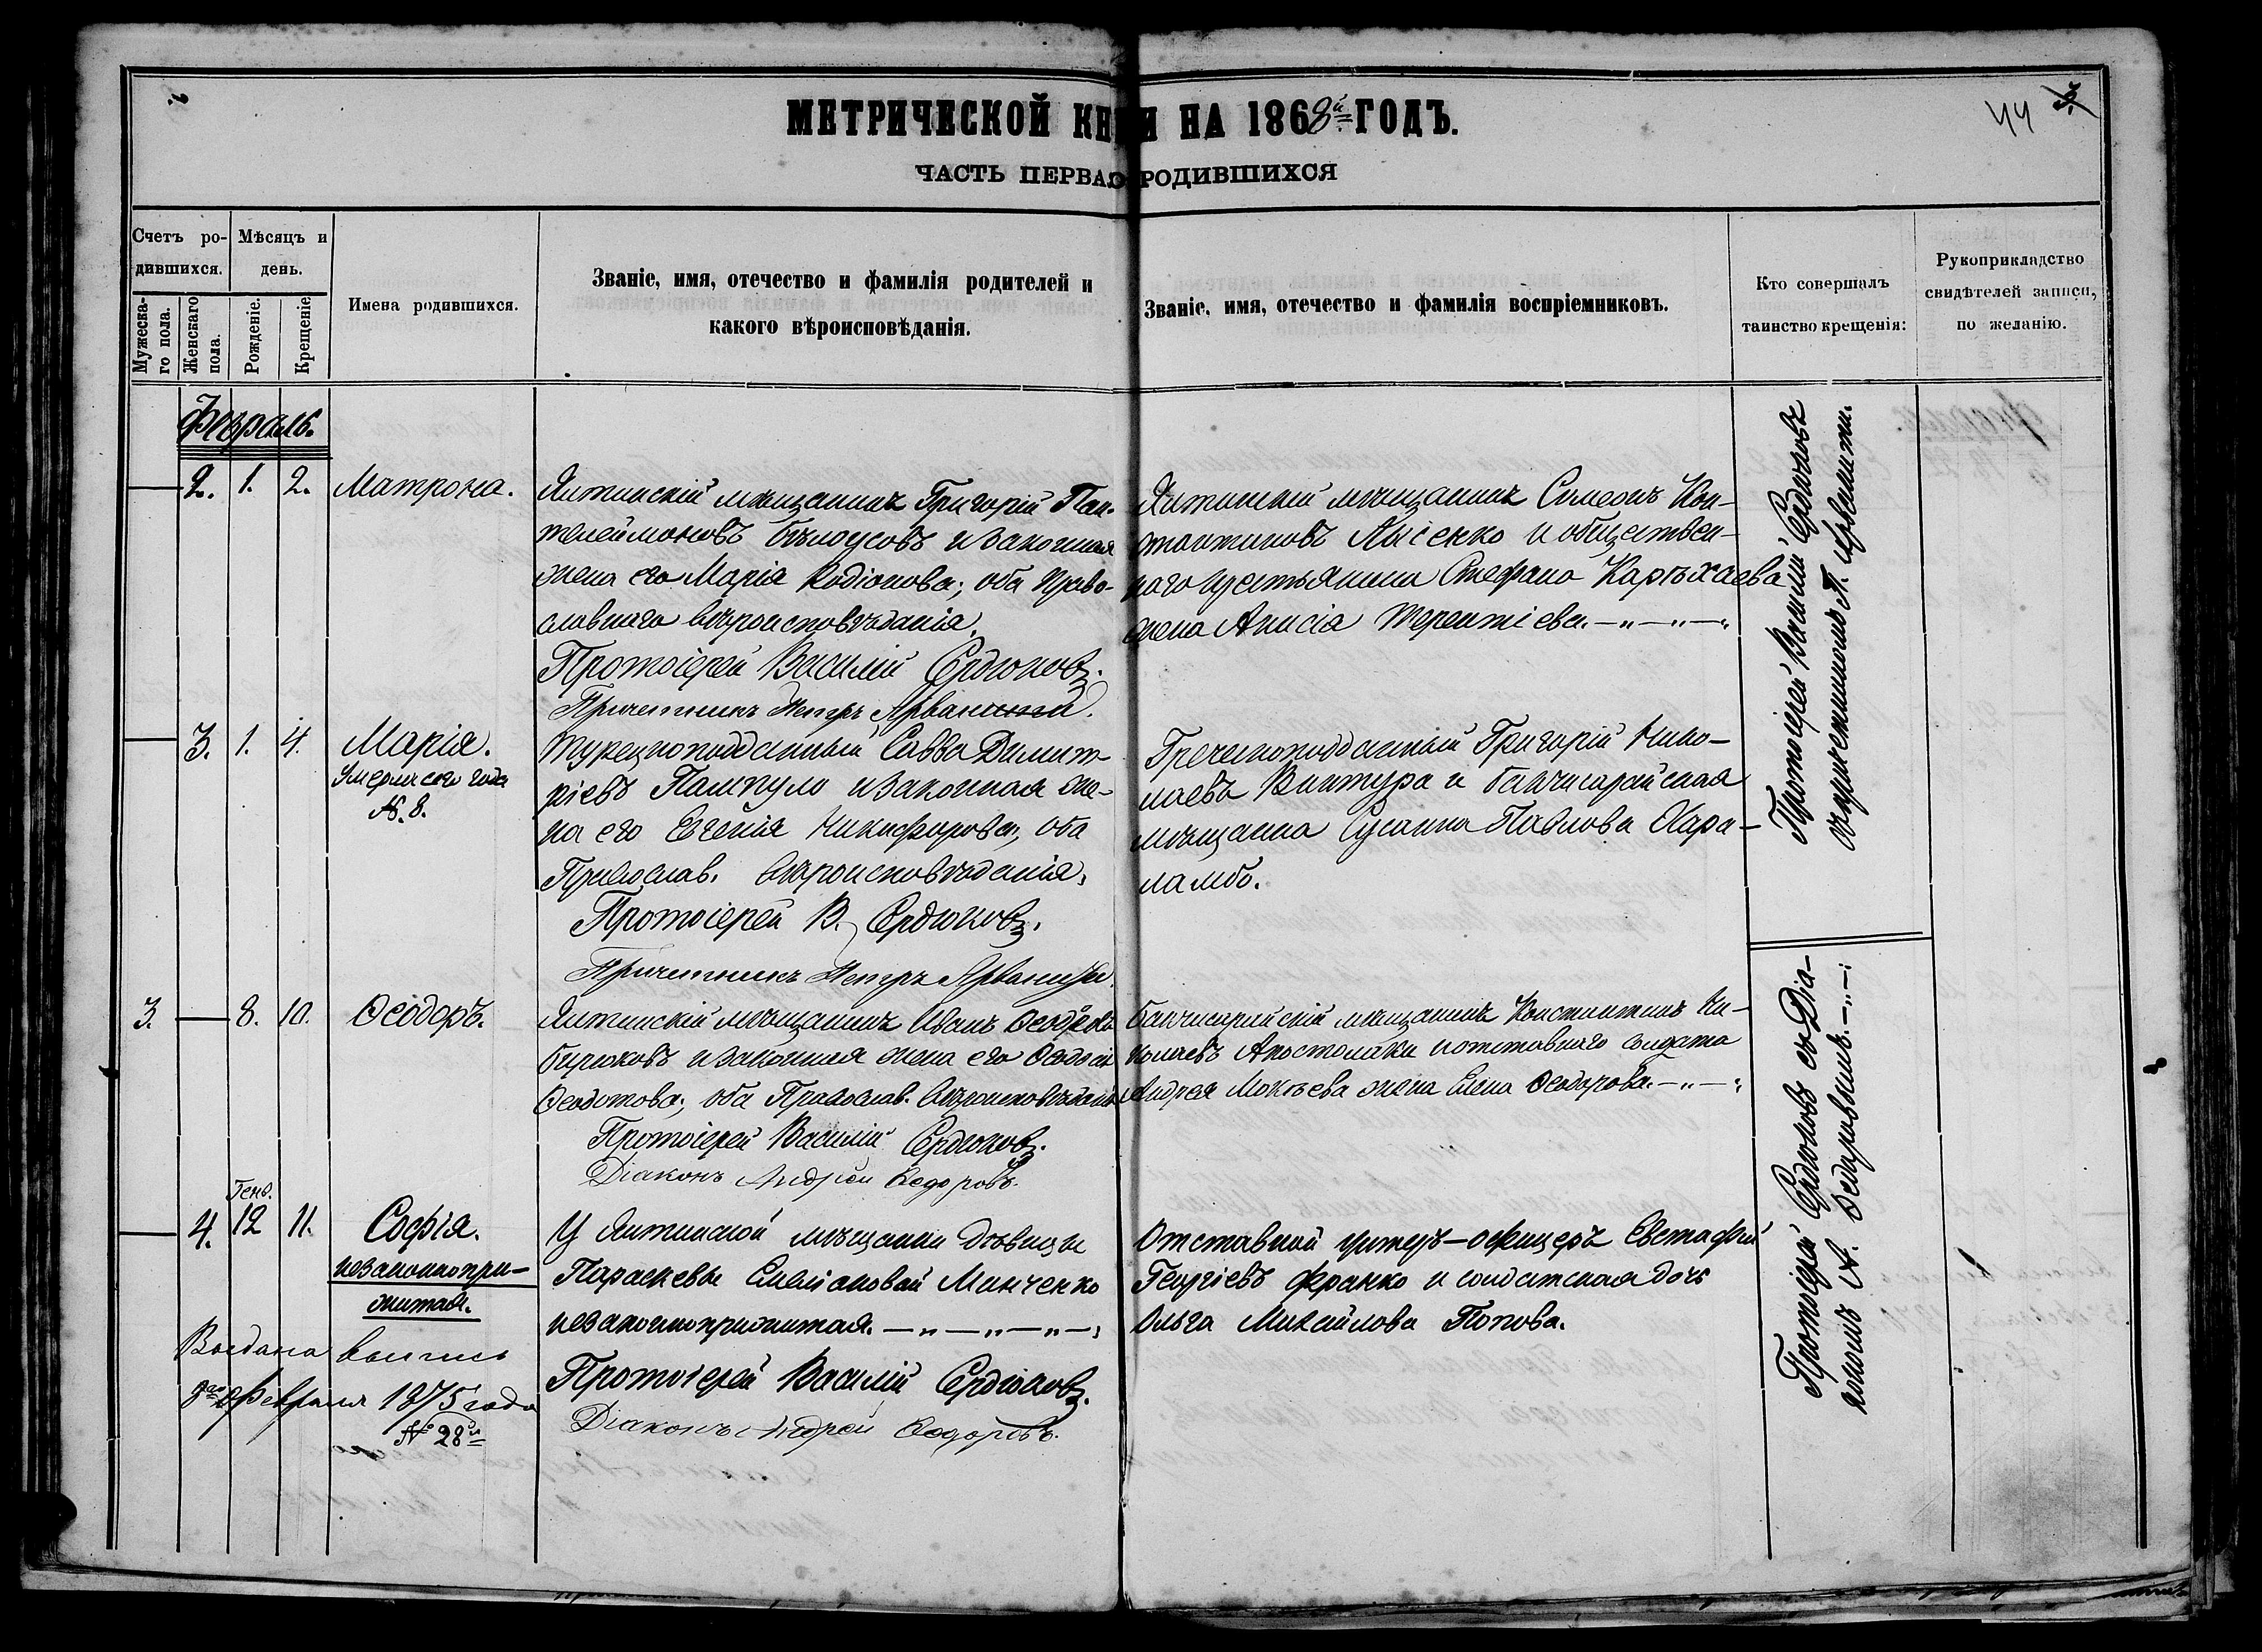 МЕТРИЧЕСКОЙ КНИ И НА 1868й ГОДЪ.
44
ЧАСТЬ ПЕРВАЯ О РОДИВШИХСЯ
Счетъ ро-
дившихся.
Мужеска-
го пола.
Женскаго
пола.
Мѣсяцъ и
день.
Рожденіе.
Крещеніе.
Имена родившихся.
Званіе, имя, отечество и фамилія родителей и
какого вѣроисповѣданія.
Званіе, имя, отечество и фамилія воспріемниковъ.
Кто совершалъ
таинство крещенія:
Рукоприкладство
свидѣтелей записи,
по желанію.
Февраль.
— 2. 1. 2. Матрона.
Ялтинскій мѣщанинъ Григорій Пан-
телеймоновъ Бѣлоусовъ и законная
жена его Марія Родіонова; оба Право-
славнаго вѣроисповѣданія.
Протоіерей Василій Сердюковъ.
Причетникъ Петръ
Ялтинскій мѣщанинъ Симеонъ Кон-
стантиновъ Лысенко и обществен-
наго Стефана Каргъхаева
жена Анисія Терентіева. — „ — „ — „
— 3. 1. 4. Марія.
Умерла сего года
№. 8.
Турецкоподданный Савва Димит-
ріевъ Пашпуло и законная же-
на его Евгенія Никифорова, оба
Православ. вѣроисповѣданія.
Протоіерей В. Сердюковъ.
Причетникъ Петръ
Греческоподданный Григорій Нико-
лаевъ Винтура и бахчисарайская
мѣщанка Сусанна Павлова Хара-
ламбо.
Протоіерей Василій Сердюковъ
съ причетникомъ П.
3. — 8. 10. Ѳеодоръ.
Ялтинскій мѣщанинъ Иванъ Ѳеодоровъ
Бирюковъ и законная жена его Ѳеодосія
Ѳеодотова; оба Православ. вѣроисповѣданія
Протоіерей Василій Сердюковъ.
Діаконъ Андрей Ѳедоровъ.
Бахчисарайскій мѣщанинъ Константинъ Ни-
колаевъ Апостолаки и отставнаго солдата
Андрея Мокѣева жена Елена Ѳеодорова. — „ — „
— 4. Генв. 12 11. Софія.
незаконнопри-
житая.
Выдана выпись
8го февраля 1875 года
№ 28й
У Ялтинской мѣщанки дѣвицы
Параскевы Симіоновой Минченко
незаконноприжитая. — „ — „ — „ — „
Протоіерей Василій Сердюковъ.
Діаконъ Андрей Ѳедоровъ.
Отставной унтеръ-офицеръ Евстафій
Георгіевъ Франко и солдатская дочь
Ольга Михайлова Попова.
Протоіерей Сердюковъ съ Діа-
кономъ А. Ѳедоровымъ. — „ — „